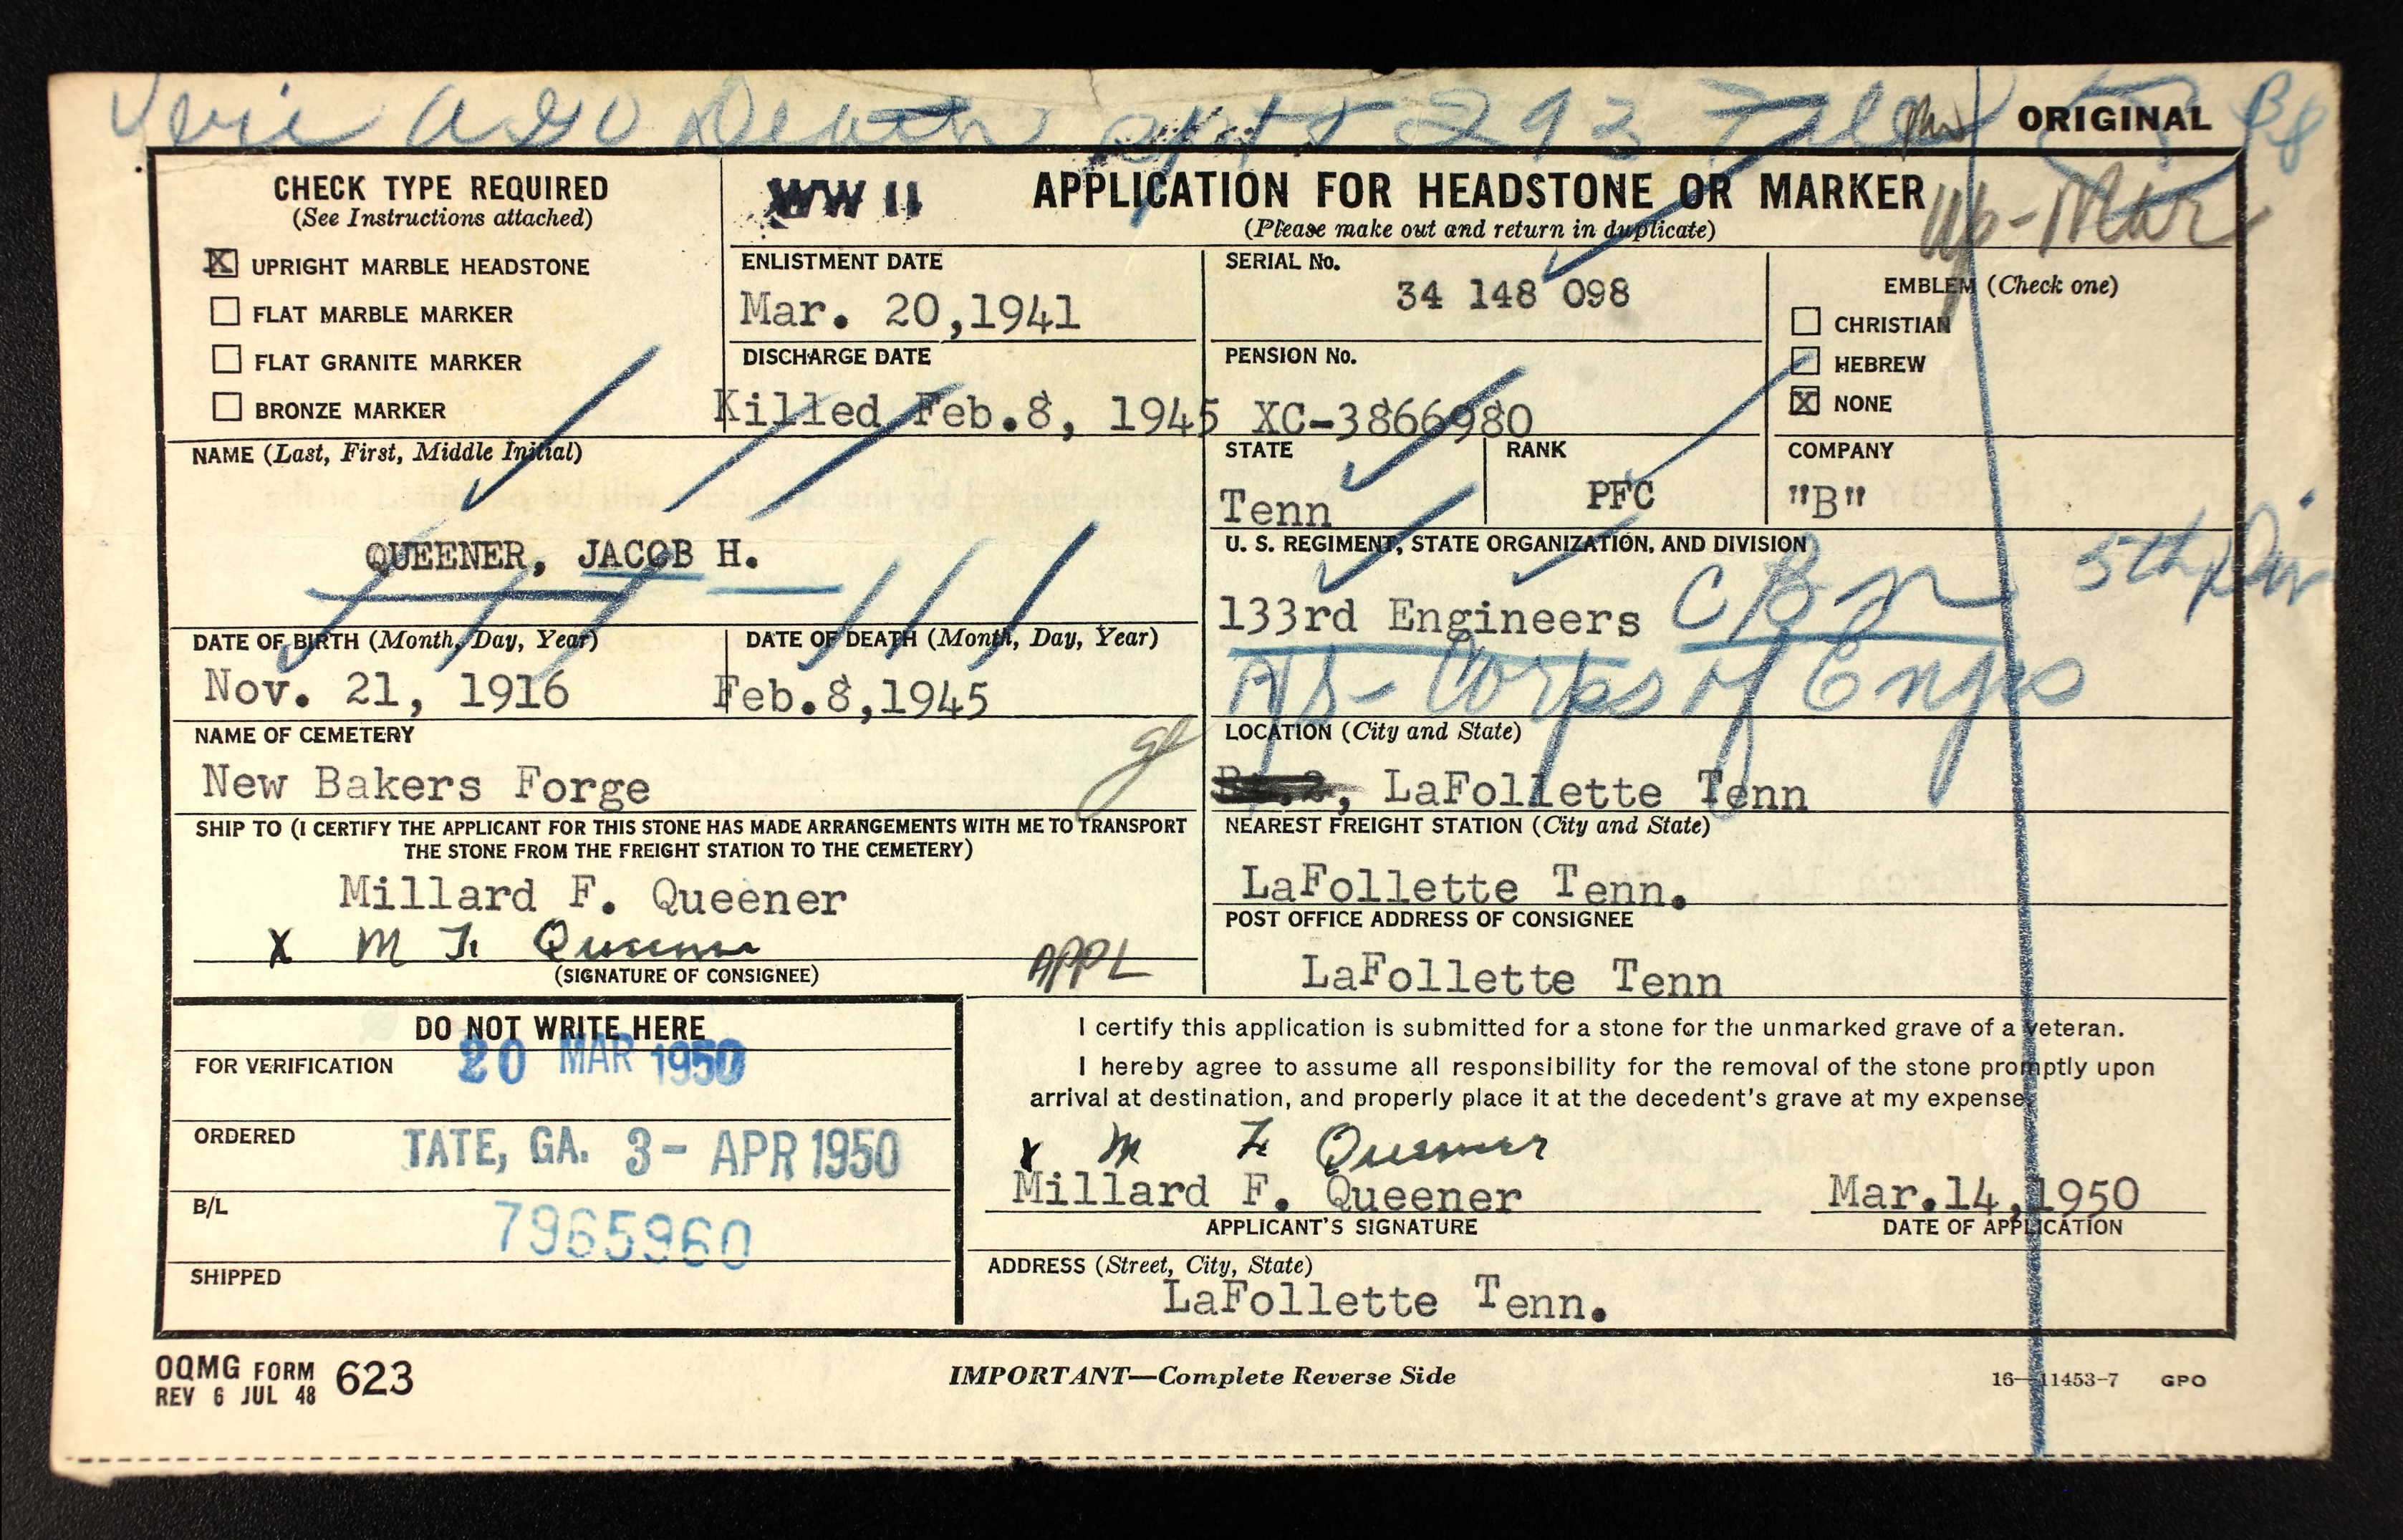 Veri AGO Death
ORIGINAL
CHECK TYPE REQUIRED
(See Instructions attached)
X UPRIGHT MARBLE HEADSTONE
FLAT MARBLE MARKER
FLAT GRANITE MARKER
BRONZE MARKER
WW II
APPLICATION FOR HEADSTONE OR MARKER
(Please make out and return in duplicate)
Up-Mar
ENLISTMENT DATE
Mar. 20,1941
SERIAL No.
34 148 098
EMBLEM (Check one)
CHRISTIAN
HEBREW
X NONE
DISCHARGE DATE
Killed Feb.8, 1945
PENSION No.
XC-3866980
NAME (Last, First, Middle Initial)
QUEENER, JACOB H.
STATE
Tenn
RANK
PFC
COMPANY
"B"
U. S. REGIMENT, STATE ORGANIZATION, AND DIVISION
133rd Engineers C Bn 5th Div
A/S- Corps of Engrs
DATE OF BIRTH (Month, Day, Year)
Nov. 21, 1916
DATE OF DEATH (Month, Day, Year)
Feb.8,1945
NAME OF CEMETERY
New Bakers Forge
LOCATION (City and State)
LaFollette Tenn
SHIP TO (I CERTIFY THE APPLICANT FOR THIS STONE HAS MADE ARRANGEMENTS WITH ME TO TRANSPORT
THE STONE FROM THE FREIGHT STATION TO THE CEMETERY)
Millard F. Queener
X M F. Queener
(SIGNATURE OF CONSIGNEE)
APPL
NEAREST FREIGHT STATION (City and State)
LaFollette Tenn.
POST OFFICE ADDRESS OF CONSIGNEE
LaFollette Tenn
DO NOT WRITE HERE
FOR VERIFICATION
20 MAR 1950
ORDERED
TATE, GA. 3- APR 1950
B/L
7965960
SHIPPED
I certify this application is submitted for a stone for the unmarked grave of a veteran.
I hereby agree to assume all responsibility for the removal of the stone promptly upon
arrival at destination, and properly place it at the decedent's grave at my expense.
X M F. Queener
Millard F. Queener
APPLICANT'S SIGNATURE
Mar.14,1950
DATE OF APPLICATION
ADDRESS (Street, City, State)
LaFollette Tenn.
OQMG FORM 623
REV 6 JUL 48
IMPORTANT—Complete Reverse Side
16—11453-7 GPO